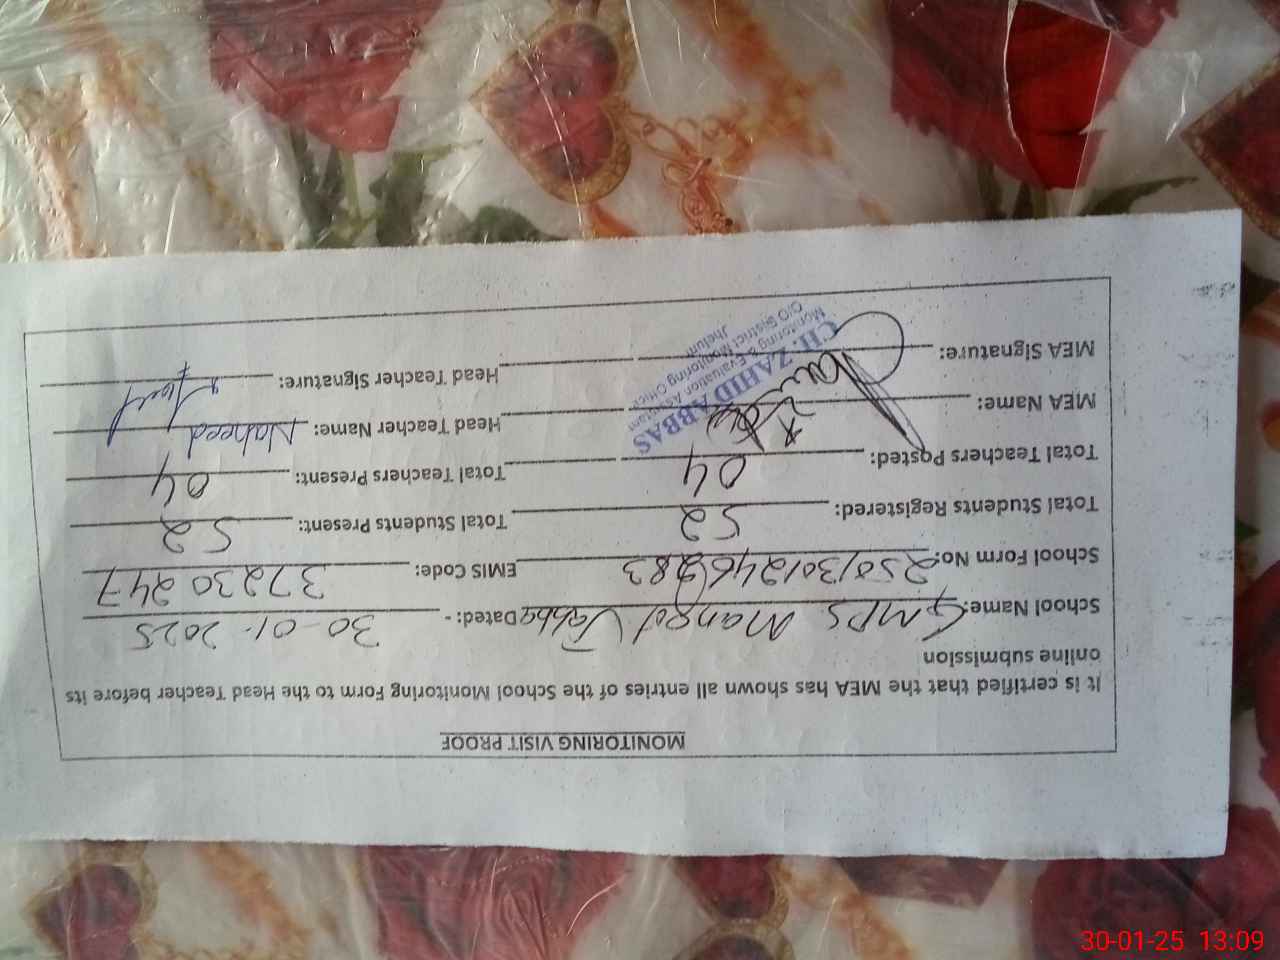 MONITORING VISIT PROOF
It is certified that the MEA has shown all entries of the School Monitoring Form to the Head Teacher before its
online submission
School Name: GMPS Mangot Dated: - 30-01-2025
School Form No: EMIS Code: 37230247
Total Students Registered: 52 Total Students Present: 52
Total Teachers Posted: 04 Total Teachers Present: 04
MEA Name: Head Teacher Name: Naheed
MEA Signature: Head Teacher Signature:
CH. ZAHID ABBAS
Monitoring & Evaluation Assistant
O/O District Monitoring Office
Jhelum
30-01-25 13:09